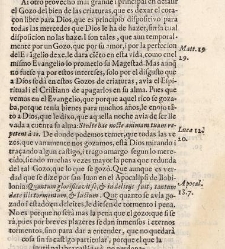 Al otro provecho mas grande i principal en desatar
el Gozo del bien de las criaturas, que es dexar el cora-
çon libre para Dios, que es principio dispositivo para
todas las mercedes que Dios le ha de hazer, sin la cual
disposicion no las haze. I son tales, que aun temporal-
mente por un Gozo, que por su amor, i por la perfecion
del Evangelio dexe, le dara ciento en esta vida, como en el
mismo Evangelio lo prometio su Magestad. Mas aunque
no fuesse por estos interesses, solo por el disgusto que
a Dios se dà en estos Gozos de criaturas, avia el Espi-
ritual i el Cristiano de apagarlos en su alma. Pues que
vemos en el Evangelio, que porque aquel rico se goza-
ba, porque tenia bienes para muchos años, le enojò
à Dios, que le dixo, que aquella noche avia de ser lle-
vada a cuenta su alma: Stulte hac nocte animam tuam re-
petent à te. De donde podemos temer, que todas las ve-
zes que vanamente nos gozamos, està Dios mirando i
traçando algun castigo, i trago amargo segun lo mere-
cido, siendo muchas vezes mayor la pena que redunda
del tal Gozo, que lo que se gozò. Que aunque es ver-
dad que se dize por san Iuan en el Apocalipsi de Babi-
lonia: Quantum glorificavit se, & in delitijs fuit, tantum
date illi tormentum & luctum. Que quanto se avia
gozado i estado en deleites, le diessen de tormento i pena.
No es porque no serà mas la pena que el gozo, que si
serà, pues por breves plazeres se dan inmensos i eternos
tormentos, sino para dar a entender, que no quedarà
cosa sin su castigo particular, porque el que la
Matt. 19
29.
Luca 12.
20.
Apocal.
18.7.